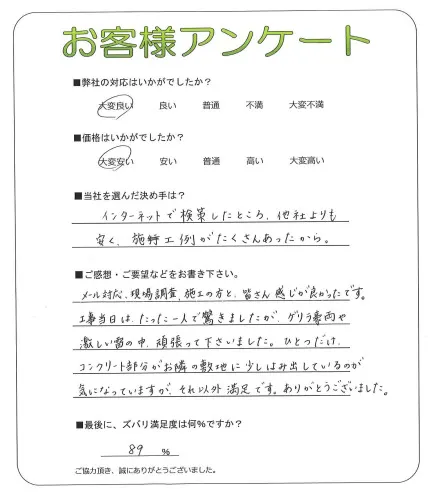 お客様アンケート
■弊社の対応はいかがでしたか？
大変良い　良い　普通　不満　大変不満
■価格はいかがでしたか？
大変安い　安い　普通　高い　大変高い
■当社を選んだ決め手は？
インターネットで検索したところ、他社よりも
安く、施工例がたくさんあったから。
■ご感想・ご要望などをお書き下さい。
メール対応、現場調査、施工の方と、皆さん感じが良かったです。
工事当日は、たった一人で驚きましたが、ゲリラ豪雨や
激しい雷の中、頑張って下さいました。ひとつだけ、
コンクリート部分がお隣の敷地に少しはみ出しているのが
気になっていますが、それ以外満足です。ありがとうございました。
■最後に、ズバリ満足度は何%ですか？
89 %
ご協力頂き、誠にありがとうございました。